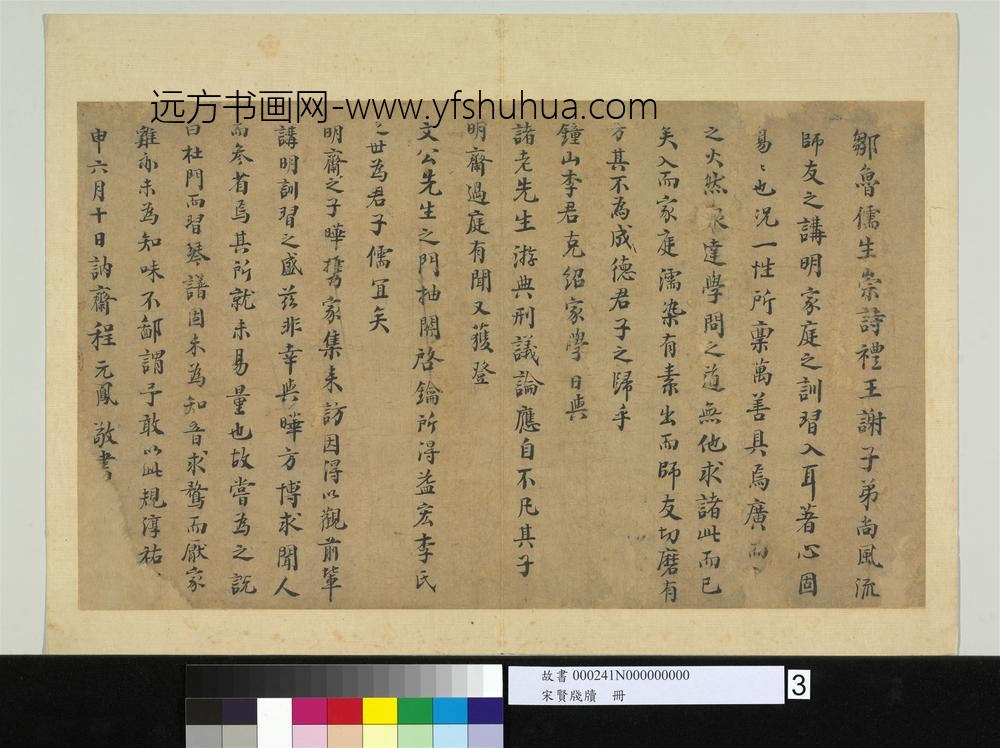 远方书画网-www.yfshuhua.com
鄒魯儒生崇詩禮王謝子弟尚風流
師友之講明家庭之訓習入耳著心固
易〻也況一性所稟萬善具焉廣而
之火然泉達學問之道無他求諸此而已
矣入而家庭濡染有素出而師友切磨有
方其不為成德君子之歸乎
鐘山李君克紹家學日與
諸老先生游典刑議論應自不凡其子
明齋過庭有聞又獲登
文公先生之門抽關啓鑰所得益宏李氏
之世為君子儒宜矣
明齋之子曄攜家集来訪因得以觀前輩
講明訓習之盛茲非幸與曄方博求聞人
而參省焉其所就未易量也故嘗為之說
曰杜門而習琴譜固未為知音求鶩而厭家
雞亦未為知味不鄙謂予敢以此規淳祐
申六月十日訥齋程元鳳敬書
故書 000241N000000000
宋賢牋牘 冊
3